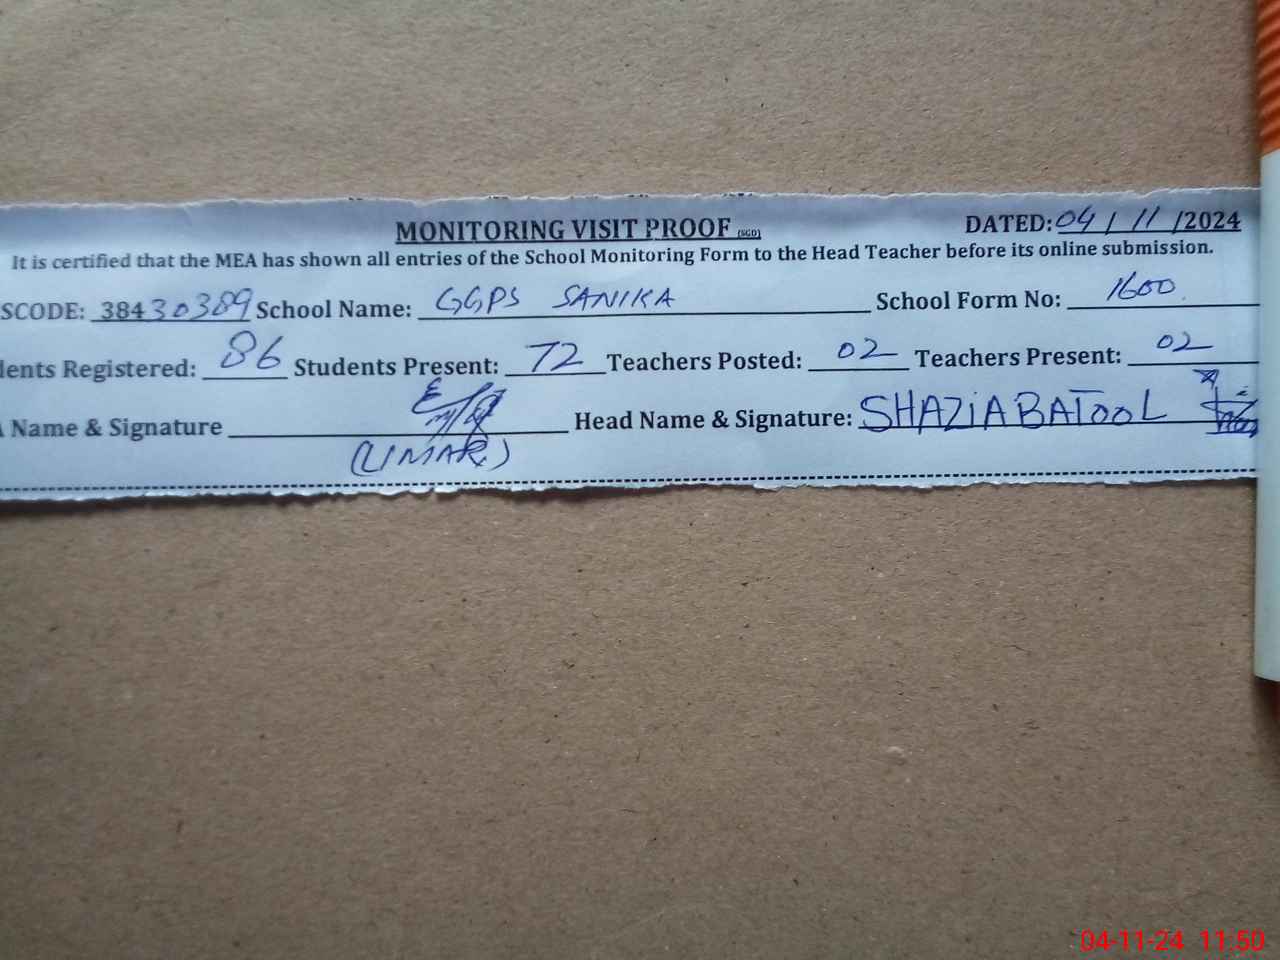 MONITORING VISIT PROOF (SGD) DATED: 04/11/2024
It is certified that the MEA has shown all entries of the School Monitoring Form to the Head Teacher before its online submission.
SCODE: 38430389 School Name: GGPS SANIKA School Form No: 1600
lents Registered: 86 Students Present: 72 Teachers Posted: 02 Teachers Present: 02
Name & Signature Head Name & Signature: SHAZIA BATOOL
(UMAR)
04-11-24 11:50